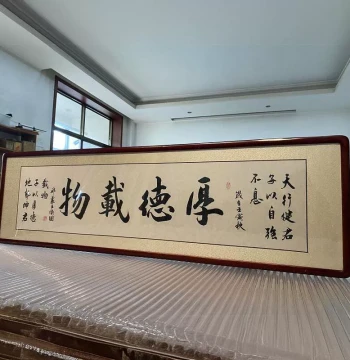 天行健君
子以自強
不息
歲在壬寅秋
厚德載物
地勢坤君
子以厚德
載物